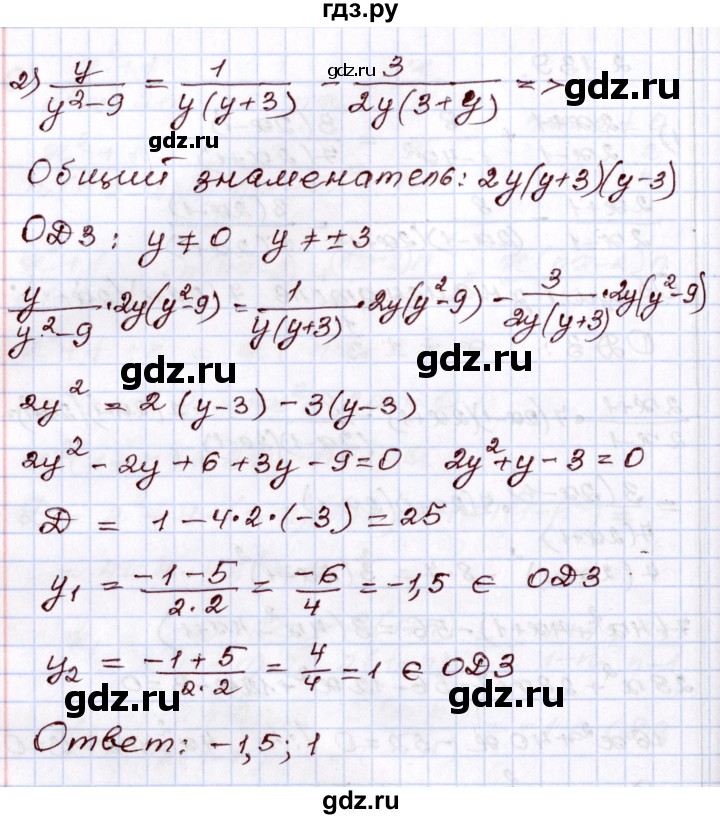 гдз.ру
2) y/(y²-9) = 1/(y(y+3)) - 3/(2y(3+y)) =>
gdz.ru gdz.ru gdz.ru
Общий знаменатель: 2y(y+3)(y-3)
ОДЗ: y ≠ 0 y ≠ ±3
y/(y²-9) · 2y(y²-9) = 1/(y(y+3)) · 2y(y²-9) - 3/(2y(y+3)) · 2y(y²-9)
gdz.ru gdz.ru
2y² = 2(y-3) - 3(y-3)
2y² - 2y + 6 + 3y - 9 = 0 2y² + y - 3 = 0
D = 1 - 4·2·(-3) = 25
gdz.ru gdz.ru
y₁ = (-1-5)/(2·2) = -6/4 = -1,5 ∈ ОДЗ
y₂ = (-1+5)/(2·2) = 4/4 = 1 ∈ ОДЗ
gdz.ru gdz.ru gdz.ru
Ответ: -1,5; 1
gdz.ru